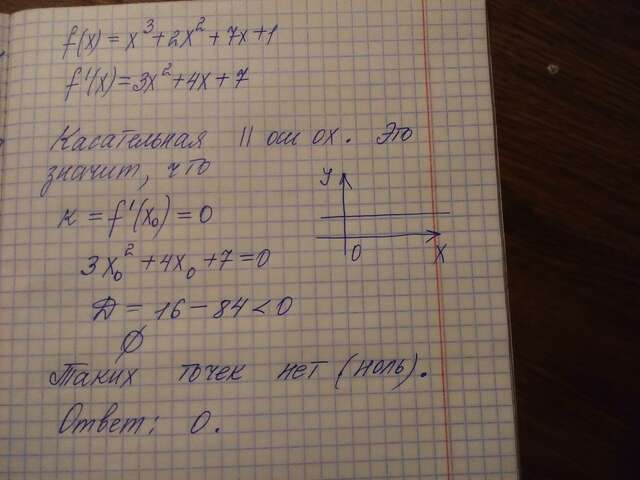 f(x) = x³ + 2x² + 7x + 1
f'(x) = 3x² + 4x + 7
Касательная || оси ох. Это
значит, что
y
к = f'(x₀) = 0
0 x
3x₀² + 4x₀ + 7 = 0
Д = 16 - 84 < 0
∅
Таких точек нет (ноль).
Ответ: 0.